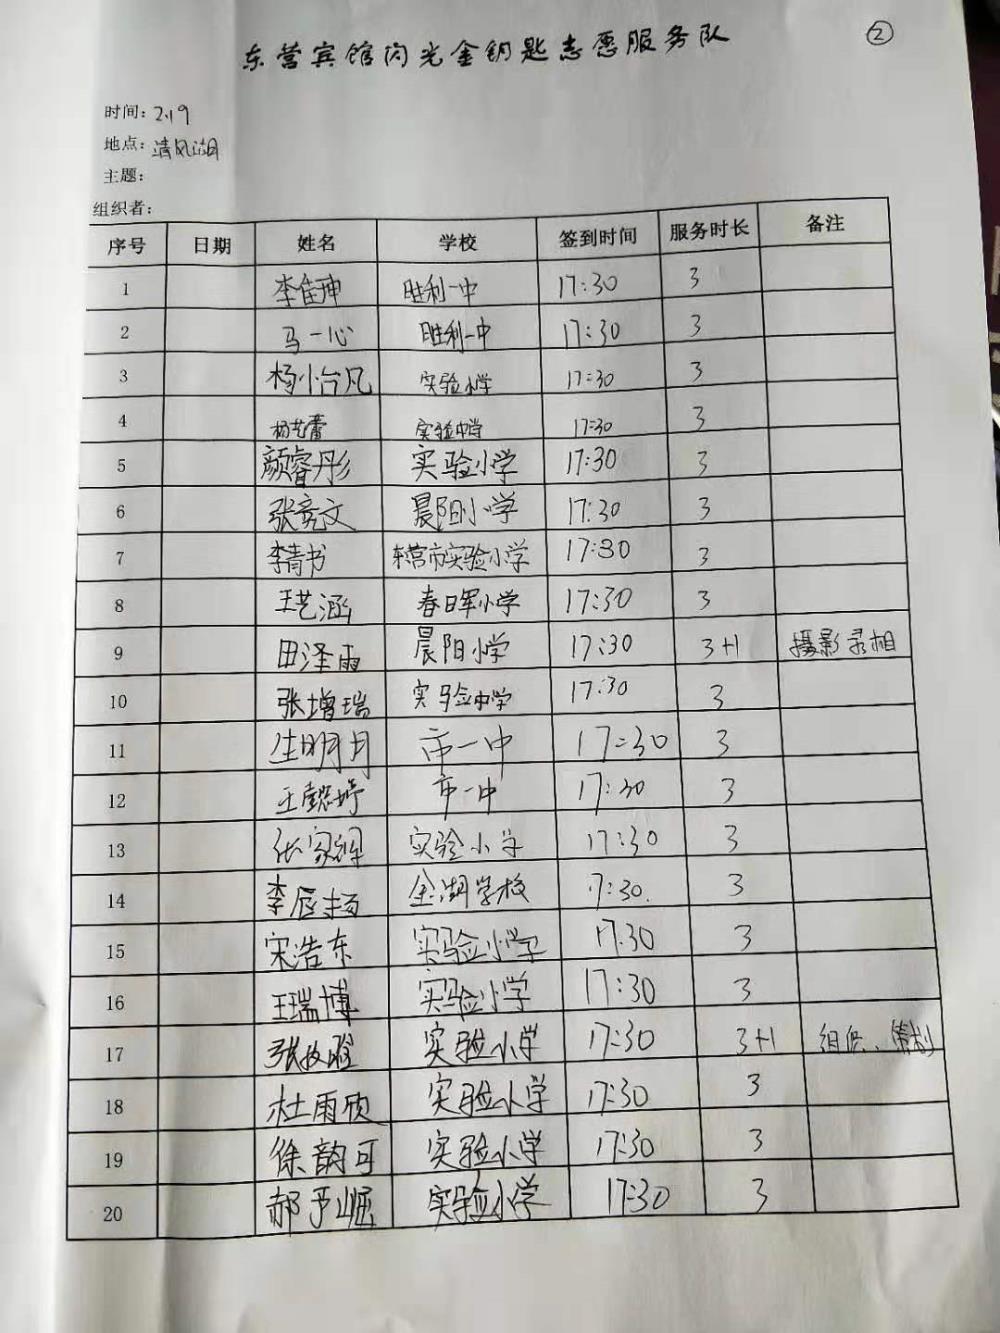 东营宾馆闪光金钥匙志愿服务队 ②
时间：2.19
地点：清风湖
主题：
组织者：
序号 日期 姓名 学校 签到时间 服务时长 备注
1 李佳珅 胜利一中 17:30 3
2 马一心 胜利一中 17:30 3
3 杨小怡凡 实验小学 17:30 3
4 杨艺蕾 实验中学 17:30 3
5 颜睿彤 实验小学 17:30 3
6 张竞文 晨阳小学 17:30 3
7 李青书 东营市实验小学 17:30 3
8 王艺涵 春晖小学 17:30 3
9 田泽雨 晨阳小学 17:30 3+1 摄影录相
10 张增瑞 实验中学 17:30 3
11 生明月 市一中 17:30 3
12 王懿婷 市一中 17:30 3
13 张家 实验小学 17:30 3
14 李辰扬 金湖学校 17:30. 3
15 宋浩东 实验小学 17:30 3
16 王瑞博 实验小学 17:30 3
17 张 实验小学 17:30 3+1 组织、策划
18 杜雨欣 实验小学 17:30 3
19 徐韵可 实验小学 17:30 3
20 郝予崛 实验小学 17:30 3